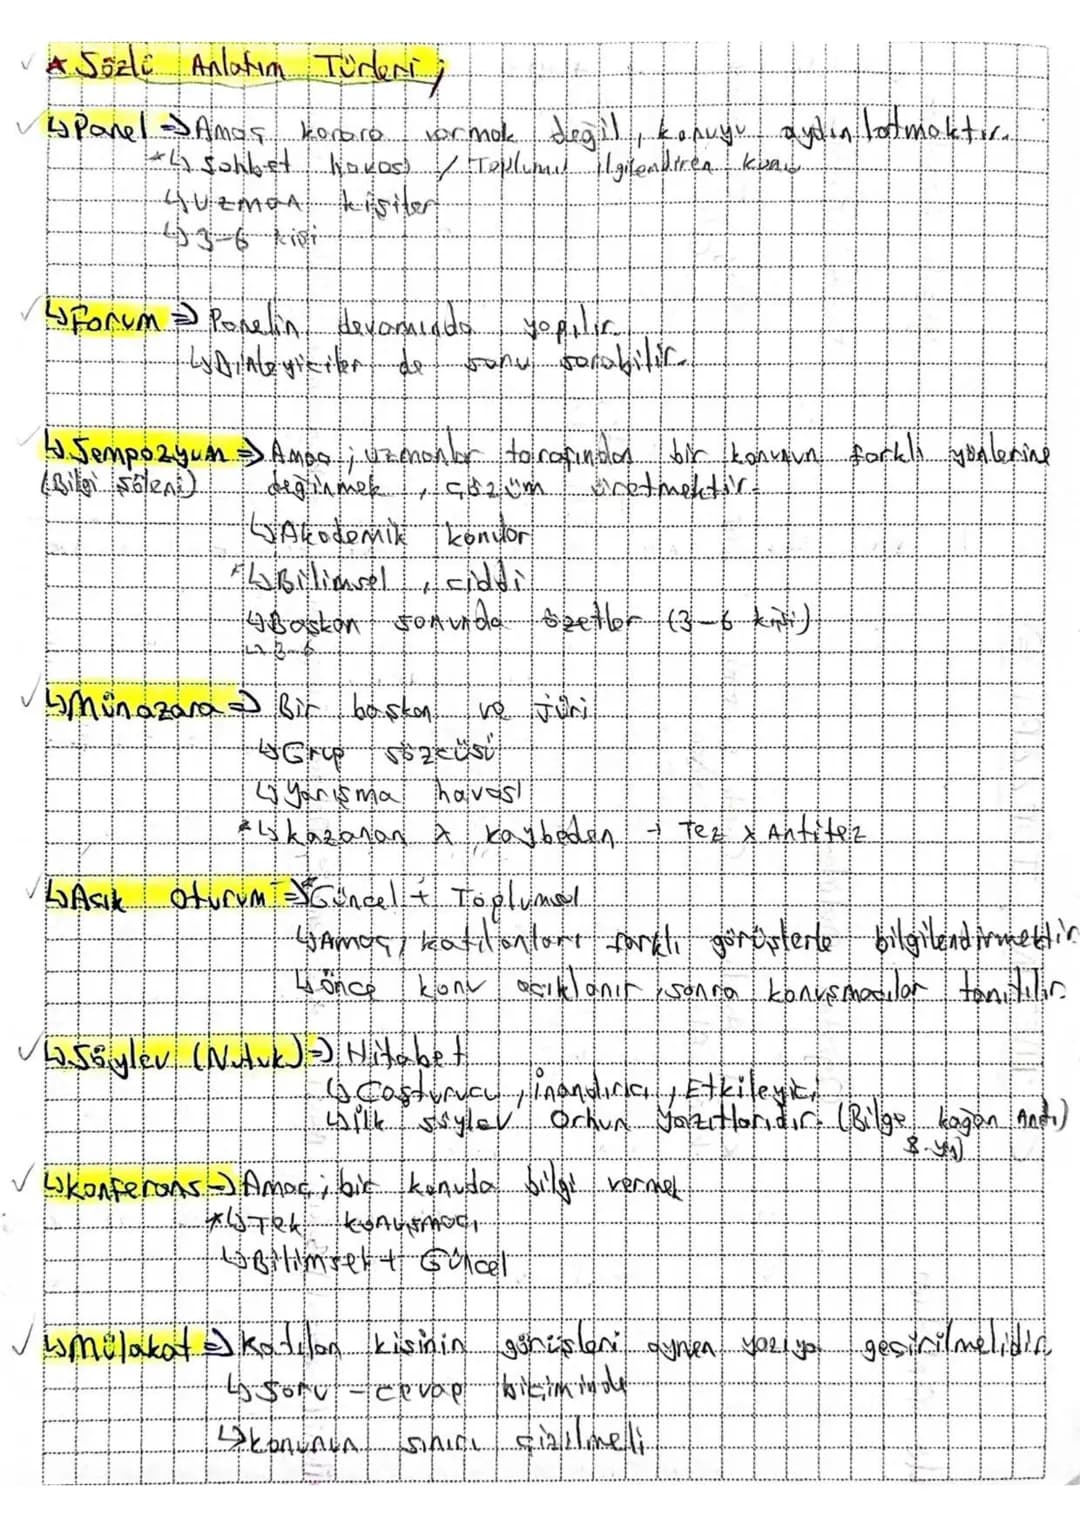 ★ Sözlü Anlatım Türleri;
↳Panel ⇒ Amaç karara varmak değil, konuyu aydınlatmaktır.
*↳ Sohbet havası / Toplumu ilgilendiren konu
↳Uzman kişiler
↳3-6 kişi
↳Forum ⇒ Panelin devamında yapılır.
↳Dinleyiciler de soru sorabilir.
↳Sempozyum ⇒ Amaç; uzmanlar tarafından bir konunun farklı yönlerine
(Bilgi şöleni) değinmek, çözüm üretmektir.
↳Akademik konular
*↳Bilimsel, ciddi
↳Başkan sonunda özetler (3-6 kişi)
↳3-6
↳Münazara ⇒ Bir başkan ve Jüri
↳Grup sözcüsü
↳Yarışma havası
*↳kazanan x kaybeden → Tez x Antitez
↳Açık oturum ⇒ *Güncel + Toplumsal
↳Amaç, katılanları farklı görüşlerle bilgilendirmektir
↳önce konu açıklanır, sonra konuşmacılar tanıtılır.
↳Söylev (Nutuk) ⇒ Hitabet
↳Coşturucu, inandırıcı, Etkileyici
↳ilk söylev Orhun Yazıtlarıdır. (Bilge kağan Anıtı)
8.yy)
↳konferans ⇒ Amaç; bir konuda bilgi vermek
*↳Tek konuşmacı
↳Bilimsel + Güncel
↳Mülakat ⇒ Katılan kisinin görüşleri aynen yazıya geçirilmelidir.
↳Soru - cevap biçiminde
↳konunun sınırı çizilmeli